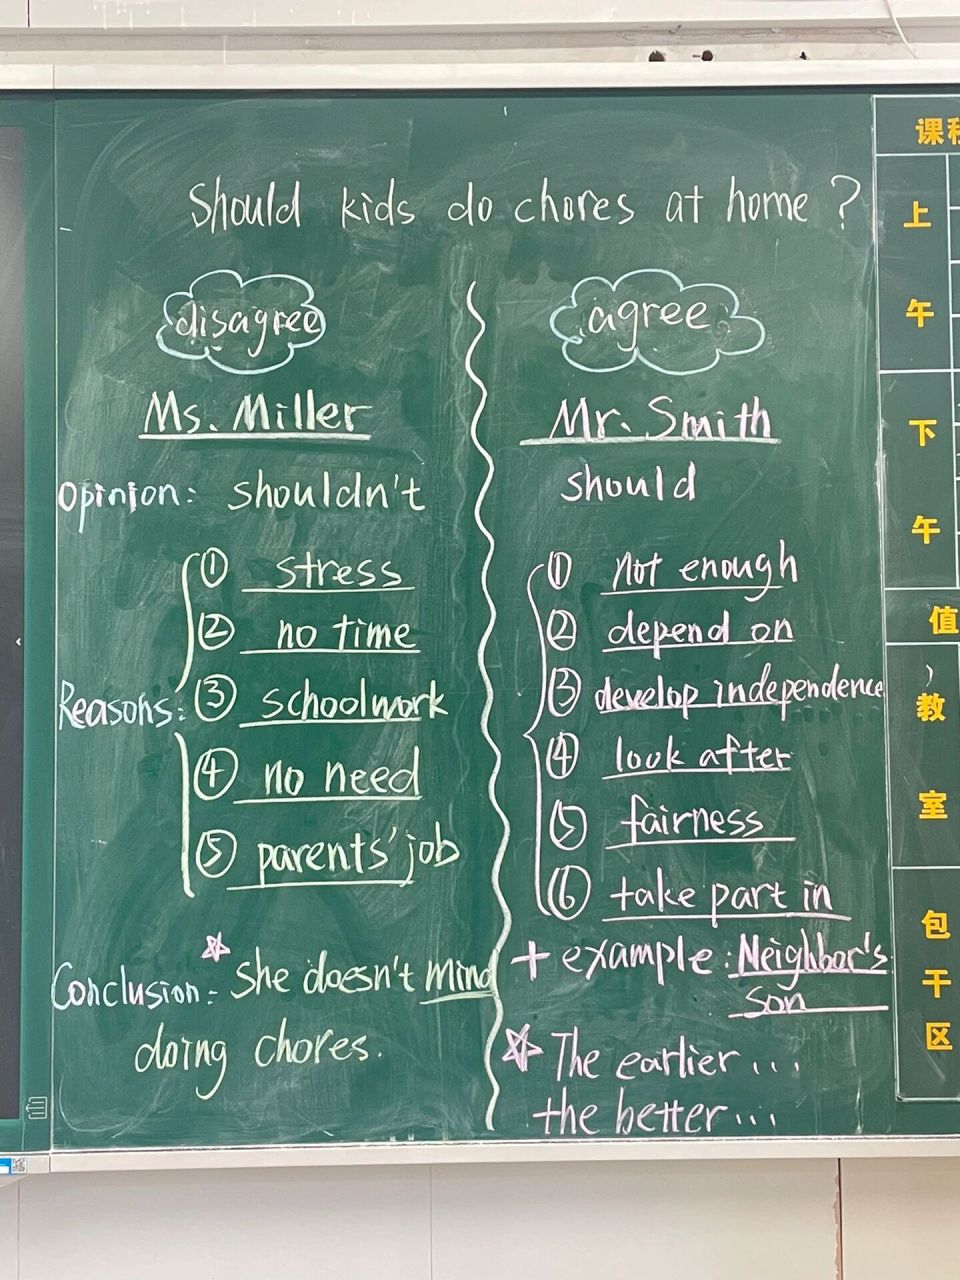 Should kids do chores at home?
disagree
Ms. Miller
Opinion: shouldn't
Reasons:
① stress
② no time
③ schoolwork
④ no need
⑤ parents' job
Conclusion: She doesn't mind
doing chores.
agree
Mr. Smith
should
① not enough
② depend on
③ develop independence
④ look after
⑤ fairness
⑥ take part in
+ example: Neighbor's
son
☆ The earlier...
the better...
课程
上
午
下
午
值
教
室
包
干
区